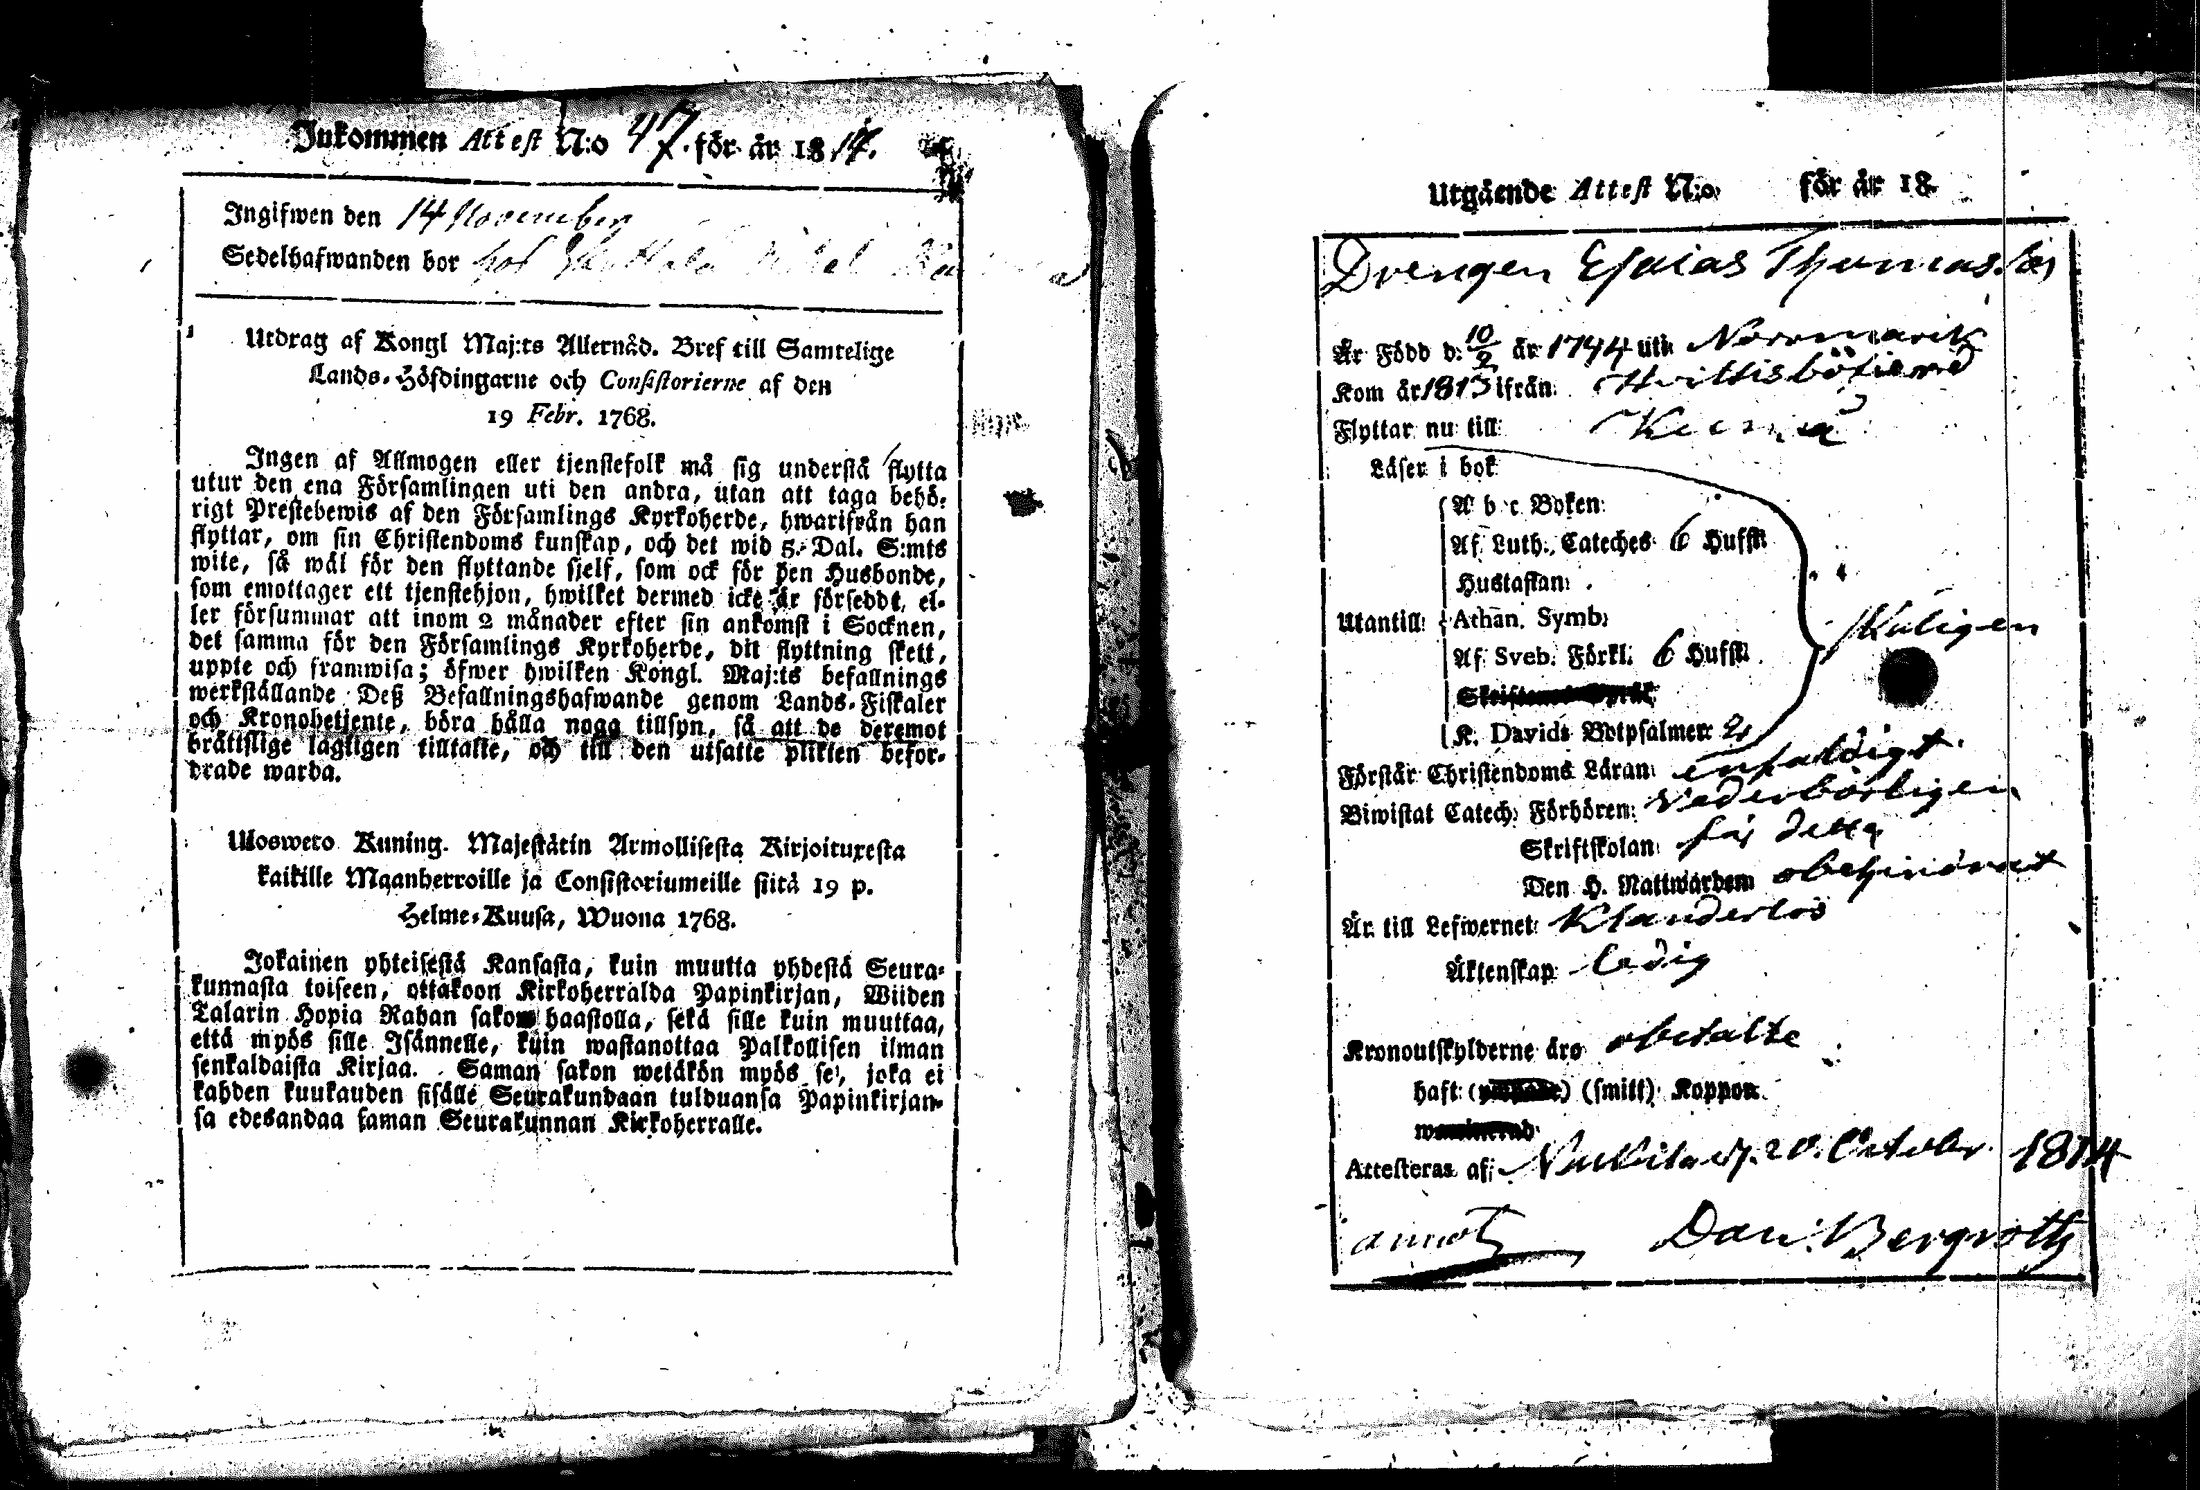 Inkommen Attest N:o 47. för år 1814.
Ingifwen den 14 November
Sedelhafwanden bor hos
Utdrag af Kongl Maj:ts Allernåd. Bref till Samtelige
Lands-Höfdingarne och Consistorierne af den
19 Febr. 1768.
Ingen af Allmogen eller tjenstefolk må sig understå flytta
utur den ena Församlingen uti den andra, utan att taga behö-
rigt Prestebewis af den Församlings Kyrkoherde, hwarifrån han
flyttar, om sin Christendoms kunskap, och det wid 5. Dal. S:mts
wite, så wäl för den flyttande sjelf, som ock för den Husbonde,
som emottager ett tjenstehjon, hwilket dermed icke är försedt, el-
ler försummar att inom 2 månader efter sin ankomst i Socknen,
det samma för den Församlings Kyrkoherde, dit flyttning skett,
uppte och framwisa; öfwer hwilken Kongl. Maj:ts befallnings
werkställande Deß Befallningshafwande genom Lands-Fiskaler
och Kronobetjente, böra hålla noga tillsyn, så att de deremot
brätislige lagligen tilltalte, och till den utsatte plikten befor-
drade warda.
Uloswelo Kuning. Majestätin Armollisesta Kirjoituxesta
kaikille Maanherroille ja Consistoriumeille siitä 19 p.
Helme-Kuusa, Wuona 1768.
Jokainen yhteisestä Kansasta, kuin muutta yhdestä Seura-
kunnasta toiseen, ottakoon Kirkoherralda Papinkirjan, Wiiden
Talarin Hopia Rahan sakon haastolla, sekä sille kuin muuttaa,
että myös sille Isännelle, kuin wastanottaa Palkollisen ilman
senkaldaista Kirjaa. Saman sakon wetäkön myös se, joka ei
kahden kuukauden sisälle Seurakundaan tulduansa Papinkirjan-
sa edesandaa saman Seurakunnan Kirkoherralle.
Utgående Attest N:o för år 18
Drengen Esaias Thomasson
Är Född d. 10/2 år 1794 uti Norrmark
Kom år 1813 ifrån Hvittisböfierd
Flyttar nu till
Läser i bok
A b c Boken
Af Luth. Cateches 6 Hufst.
Hustaflan
Utantill Athan. Symb.
skäligen
Af Sveb. Förkl. 6 Hufst.
K. Davids Botpsalmer 2
Förstår Christendoms Läran enfaldigt
Biwistat Catech. Förhören vederbörligen
Skriftskolan för detta
Den H. Nattwarden obehindrat
Är till Lefwernet Klanderlös
Äktenskap ledig
Kronoutskylderne äro obetalte
haft (smitt) Koppor
Attesteras af Nakkila d. 20. October 1814
Dan: Bergroth